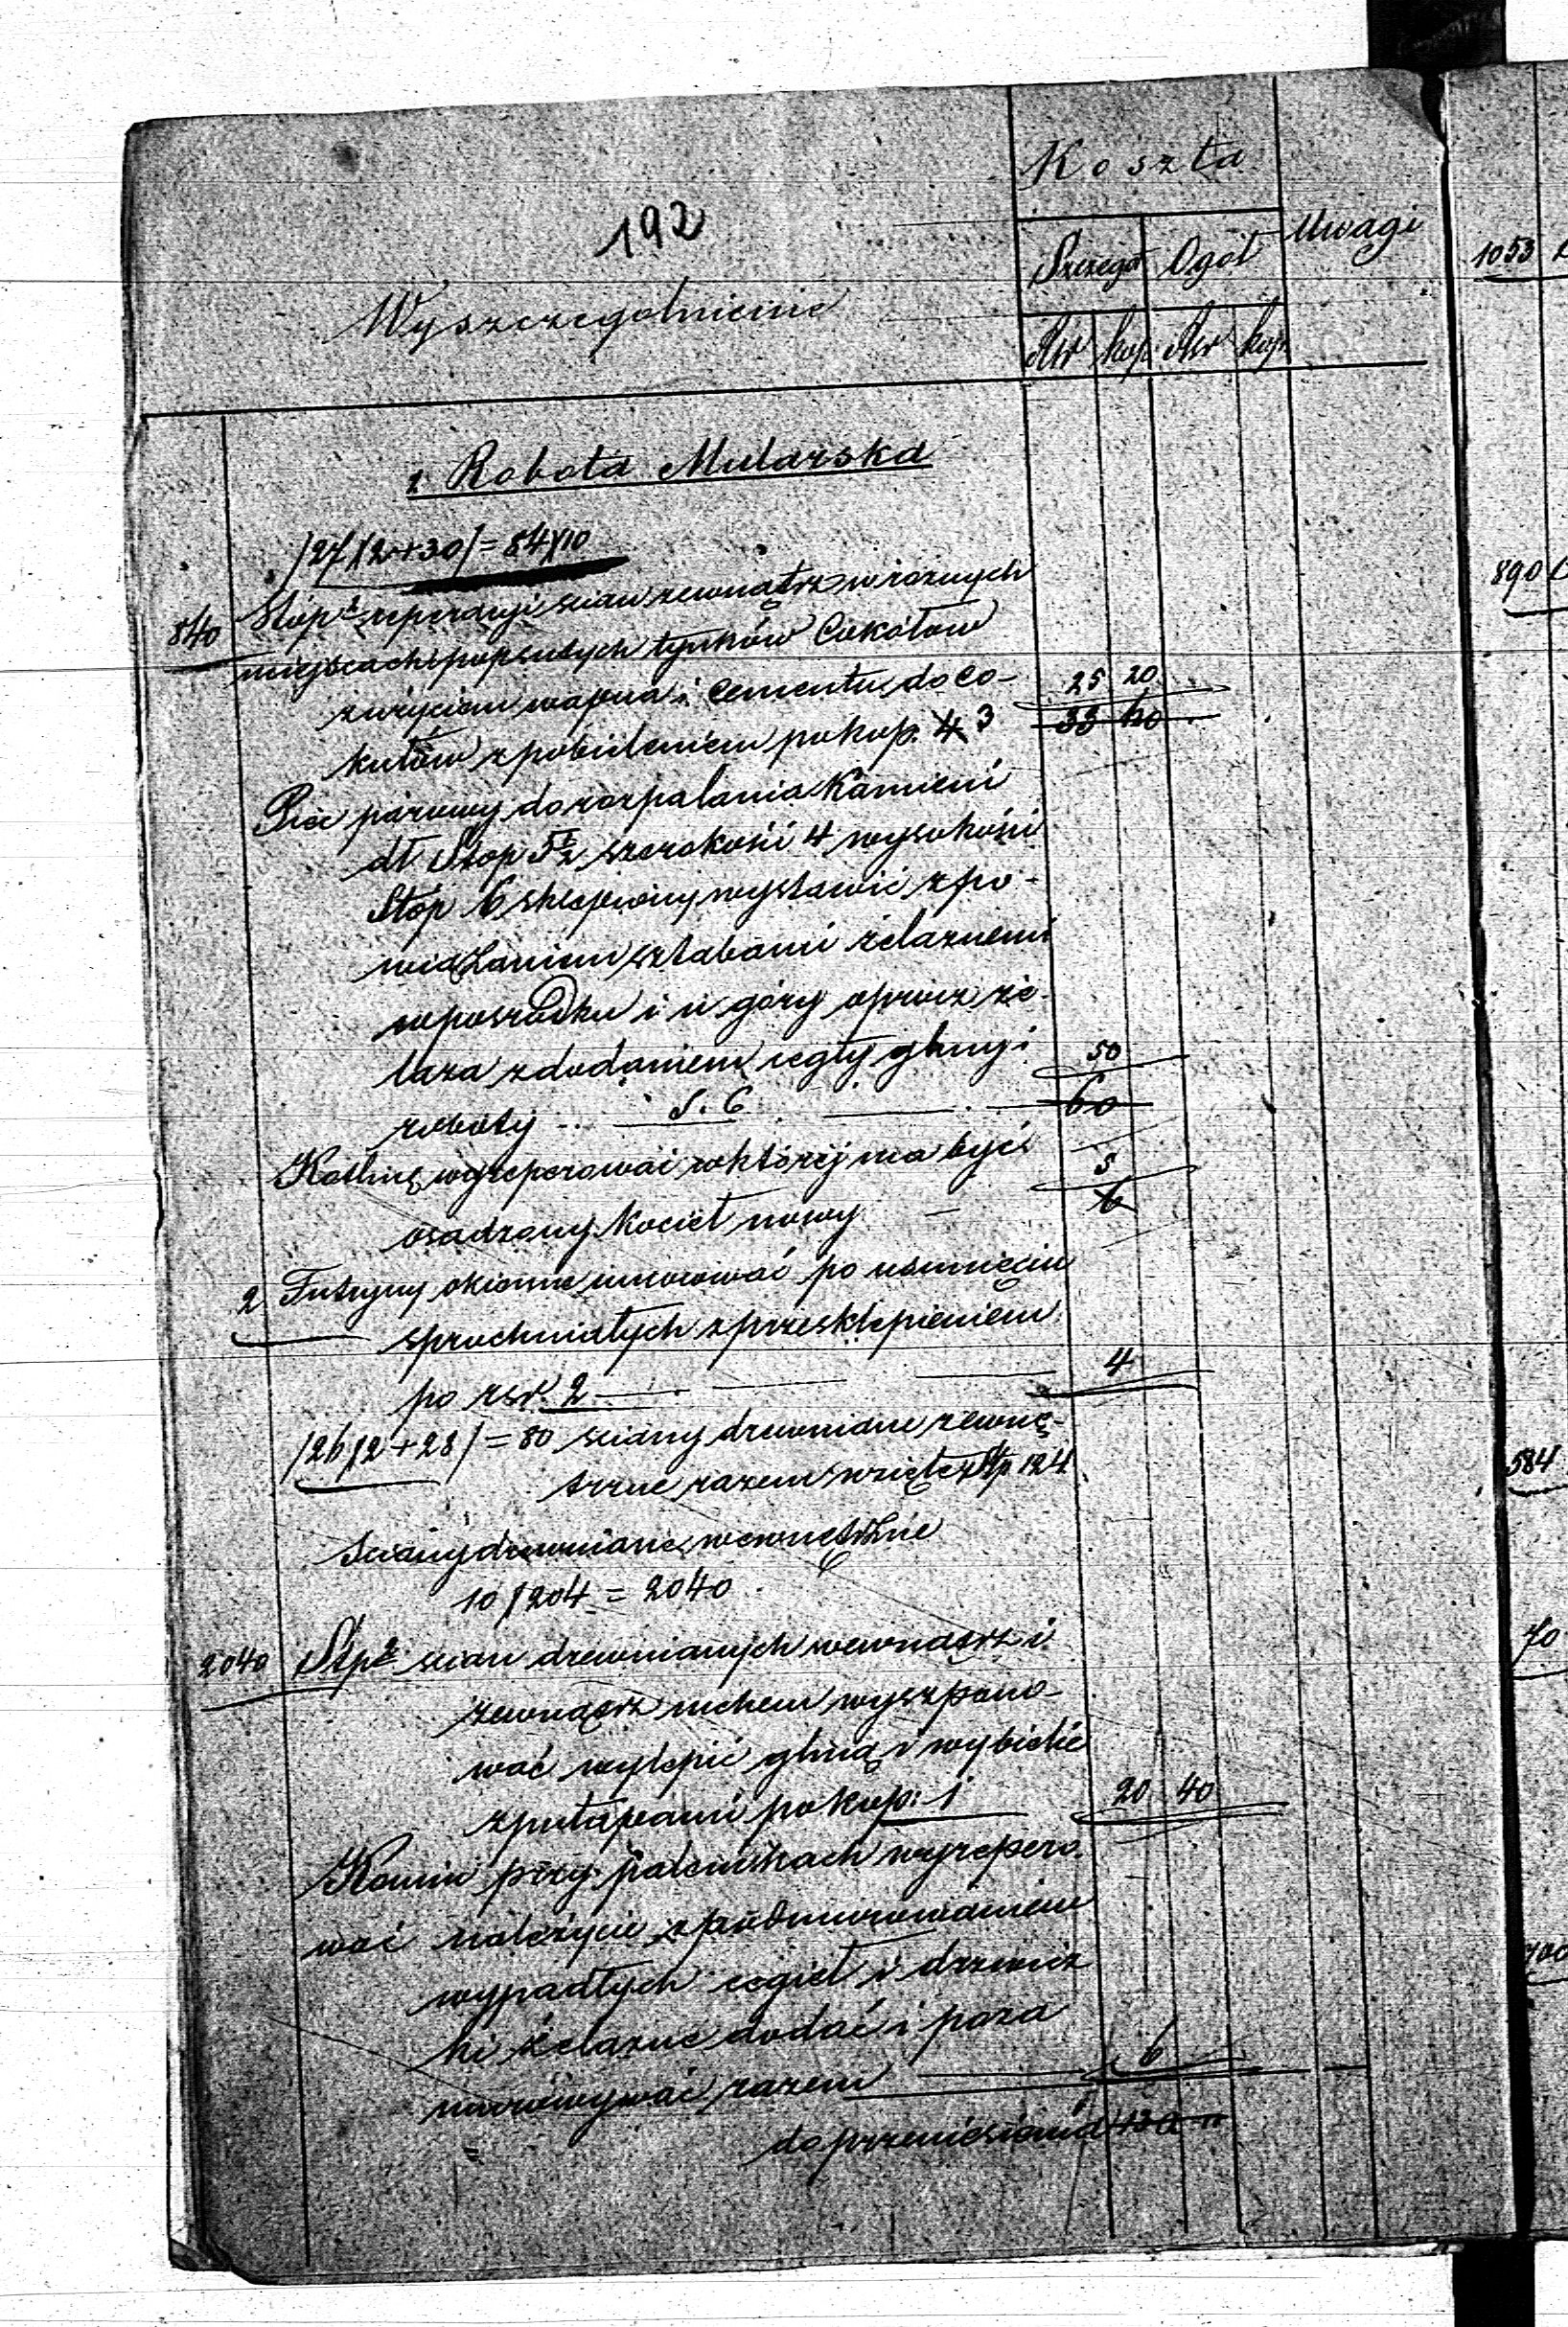 Koszta
192
Szczegół Ogół Uwagi
Wyszczegolnienie
Rsr kop Rsr kop
1 Robota Mularska
/27/2+30/=84/10
840 Stóp² reperacyi scian zewnątrz w roznych
miejscach popsutych tynków Cokołow
z użyciem wapna i Cementu do co-
25 20
kułów z pobieleniem po kop. 4 3 33 60
Piec parowy do rozpalania Kamieni
dł Stop 5½ szerokości 4 wysokości
Stóp 6 sklepiony wystawić z po-
wiązaniem sztabami żelaznemi
w pośrodku i u góry oprócz że-
laza z dodaniem cegły gliny i
50
roboty S. C 60
Kotlinę wyreperować w której ma być
5
osadzony Kocieł nowy 6
2 Futryny okienne wmurować po usunięciu
spruchniałych z przesklepieniem
po rsr. 2 4
/26/2+28/=80 sciany drewniane zewnę-
trzne razem wzięte Stp 124
Sciany drewniane wewnętrzne
10/204 = 2040
2040 Stp² scian drewnianych wewnątrz i
zewnątrz mchem wyszpano-
wać wylepić gliną i wybielić
z pułapami po kop: 1 20 40
Komin przy palenikach wyrepero
wać należycie z podmurowaniem
wypadłych cegieł i drzwicz
ki żelazne dodać i poza
murowywać razem 6
do przeniesienia
1053
890
584
70
700